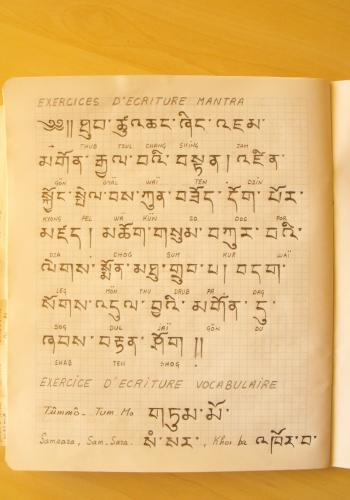 EXERCICES D'ECRITURE MANTRA
༄༅།། ཐུབ་ཚུལ་འཆང་ཞིང་འཇམ་
THUB TSUL CHANG SHING JAM
མགོན་རྒྱལ་བའི་བསྟན། འཛིན་
GÖN GYAL WAÏ TEN DZIN
སྐྱོང་སྤེལ་བས་ཀུན་བཟོད་དོག་པོར་
KYONG PEL WA KUN ZO DOG POR
མཛད། མཆོག་གསུམ་བཀུར་བའི་
DZA CHOG SUM KUR WAÏ
ལེགས་སྨོན་མཐུ་གྲུབ་པ། བདག་
LEG MÖN THU DRUB PA DAG
སོགས་འདུལ་བྱའི་མགོན་དུ་
SOG DUL JAÏ GÖN DU
ཞབས་བརྟན་ཤོག །།
SHAB TEN SHOG
EXERCICE D'ECRITURE VOCABULAIRE
Tümmö - Tum Mo གཏུམ་མོ་
Samsara, Sam-Sara. སཾ་སར་, Khor ba འཁོར་བ་